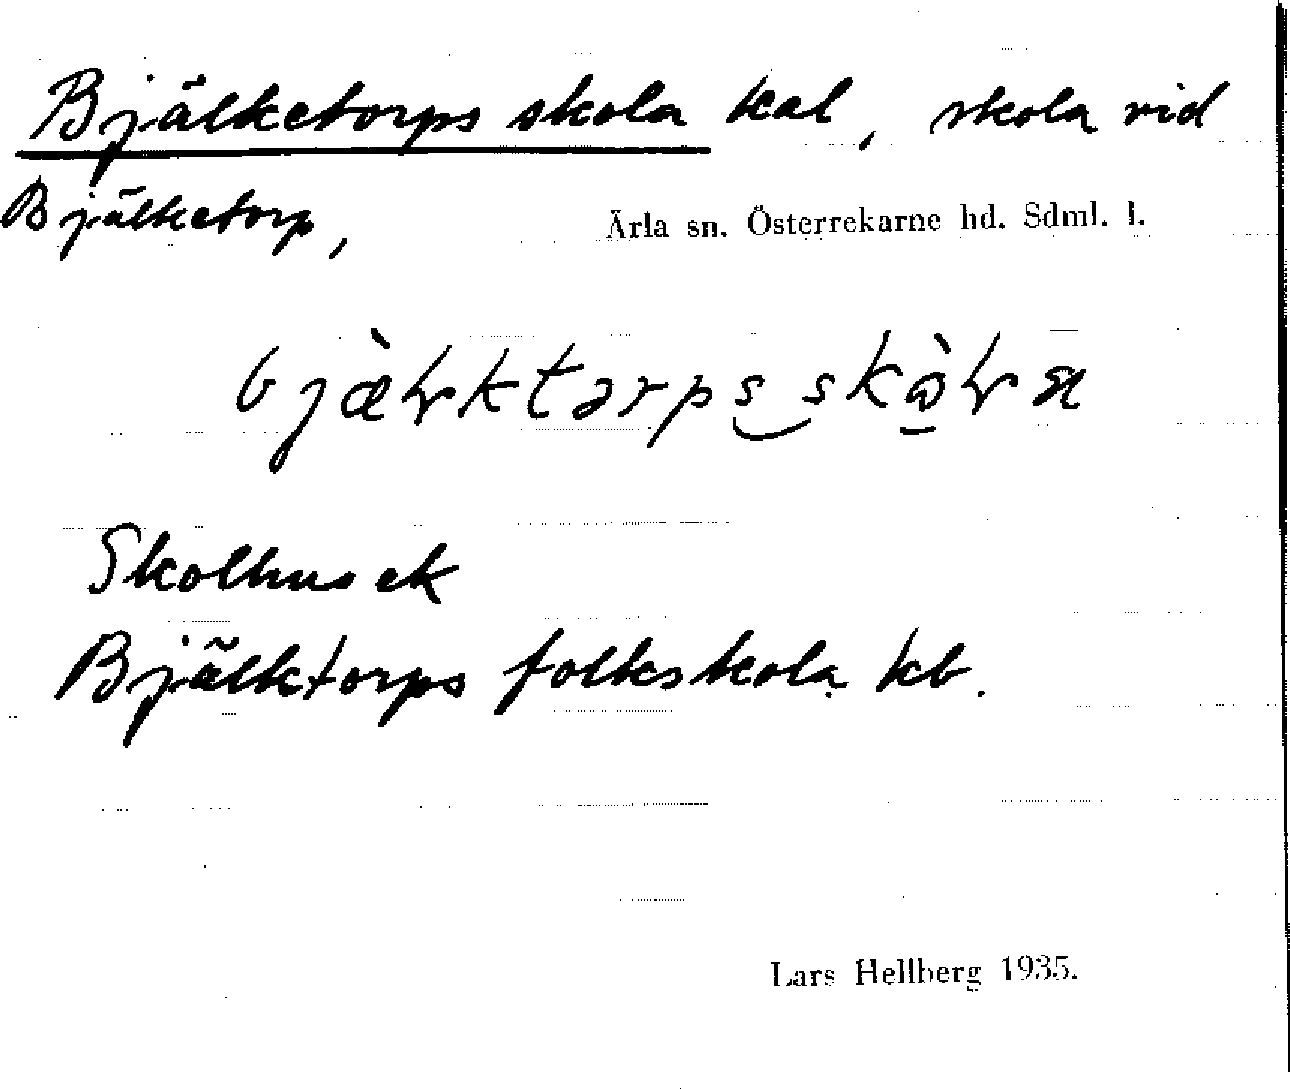 Bjälketorps skola kal, skola vid
Bjälketorp,
Ärla sn. Österrekarne hd. Sdml. l.
Skolhus ek
Bjälktorps folkskola kb.
Lars Hellberg 1935.